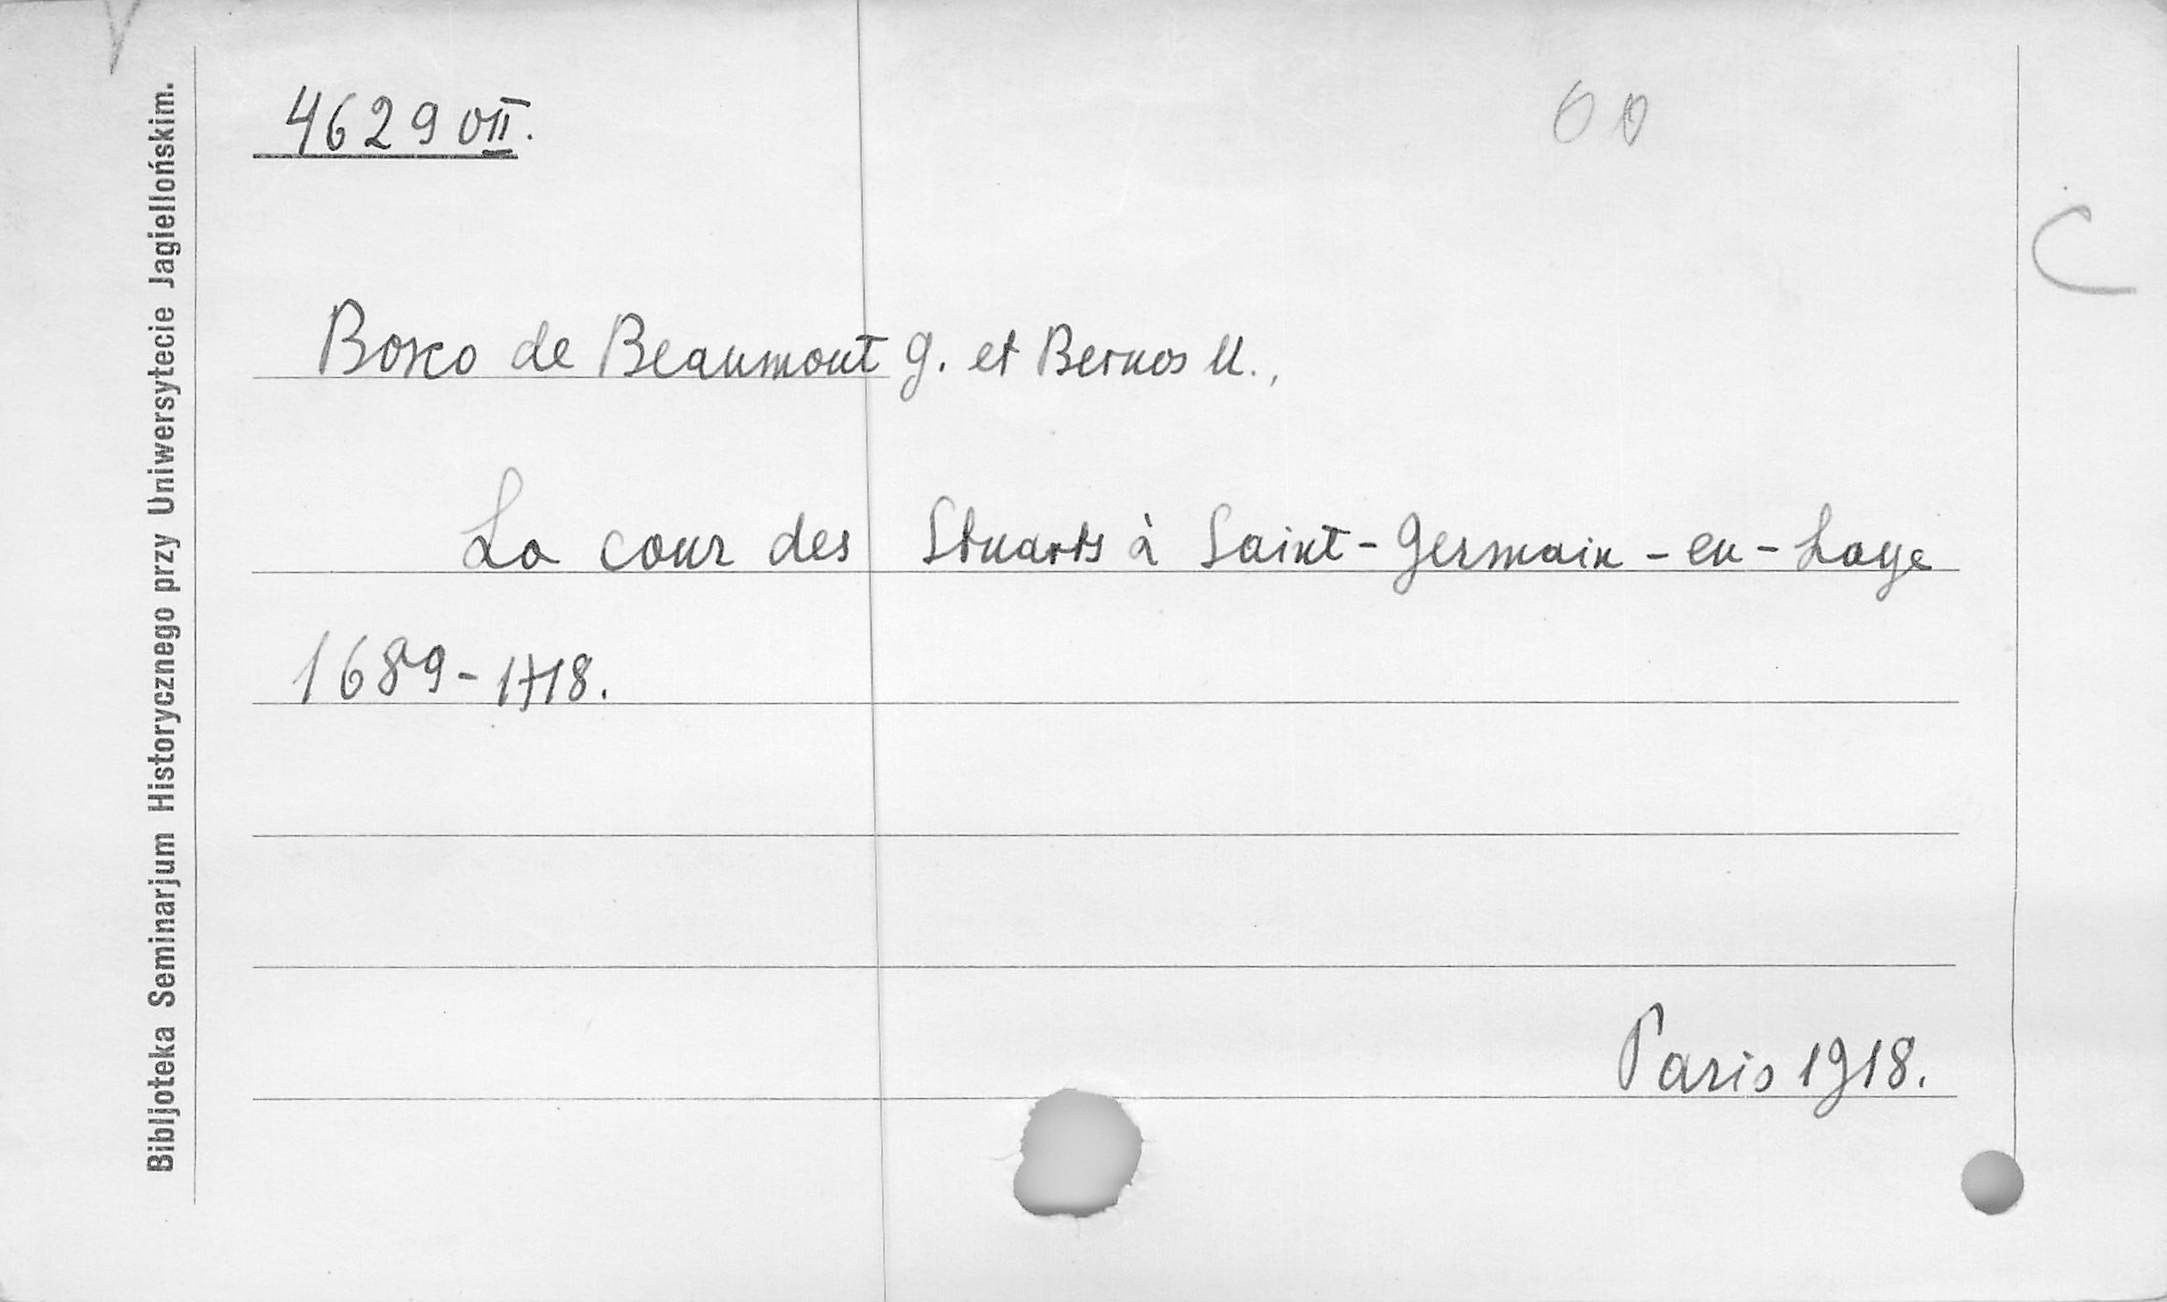 4629 VII.
Bosco de Beaumont G. et Bernos M.,
La cour des Stuarts à Saint-Germain-en-Laye
1689-1718.
Paris 1918.
Bibljoteka Seminarjum Historycznego przy Uniwersytecie Jagiellońskim.
C